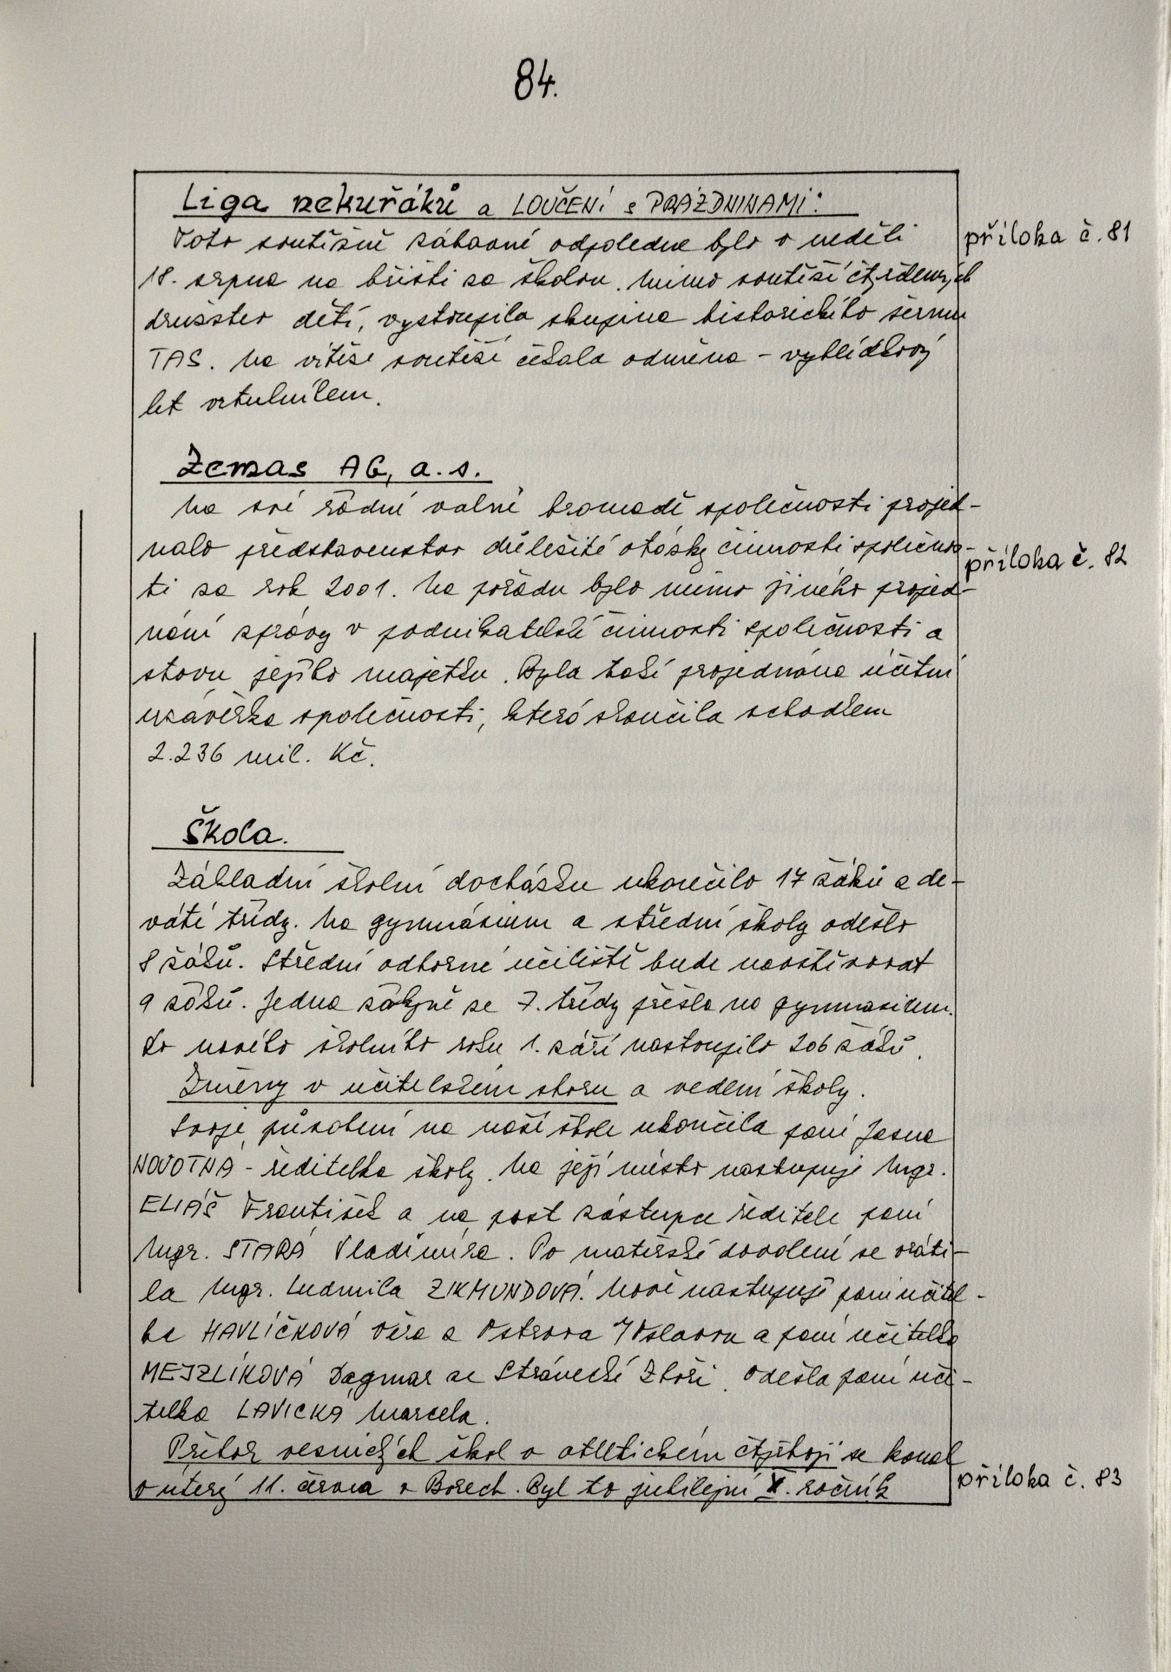 84.
Liga nekuřáků a LOUČENÍ s PRÁZDNINAMI:
Toto soutěžně zábavné odpoledne bylo v neděli
příloha č. 81
18. srpna na hřišti za školou. Mimo soutěží čtyřčlenných
družstev dětí, vystoupila skupina historického šermu
TAS. Na vítěze soutěží čekala odměna - vyhlídkový
let vrtulníkem.
Zemas AG, a.s.
Na své řádné valné hromadě společnosti projed-
nalo představenstvo důležité otázky činnosti společnos-
příloha č. 82
ti za rok 2001. Na pořadu bylo mimo jiného projed-
nání zprávy v podnikatelské činnosti společnosti a
stavu jejího majetku. Byla také projednána účetní
uzávěrka společnosti, která skončila schodkem
2.236 mil. Kč.
Škola.
Základní školní docházku ukončilo 17 žáků z de-
váté třídy. Na gymnásium a střední školy odešlo
8 žáků. Střední odborné učiliště bude navštěvovat
9 žáků. Jedna žákyně ze 7. třídy přešla na gymnasium.
Do nového školního roku 1. září nastoupilo 206 žáků.
Změny v učitelském sboru a vedení školy.
Svoje působení na naší škole ukončila paní Jasna
NOVOTNÁ - ředitelka školy. Na její místo nastupuje Mgr.
ELIÁŠ František a na post zástupce ředitele paní
Mgr. STARÁ Vladimíra. Po mateřské dovolené se vráti-
la Mgr. Ludmila ZIKMUNDOVÁ. Nově nastupují paní učitel-
ka HAVLÍČKOVÁ Věra z Ostrova n/Oslavou a paní učitelka
MEJZLÍKOVÁ Dagmar ze Stránecké Zhoře. Odešla paní uči-
telka LAVICKÁ Marcela.
Přebor vesnických škol v atletickém čtyřboji se konal
v úterý 11. června v Borech. Byl to jubilejní X. ročník
příloha č. 83